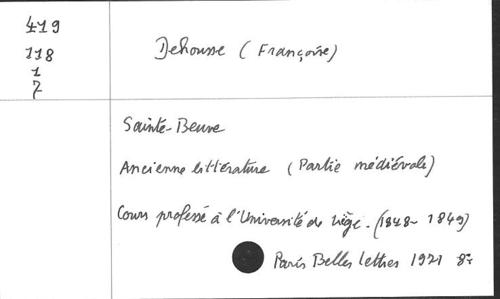 419
118
1
7
Dehousse (Françoise)
Sainte-Beuve
Ancienne littérature (Partie médiévale)
Cours professé à l'Université de Liège. (1848-1849)
Paris Belles lettres 1971 8°